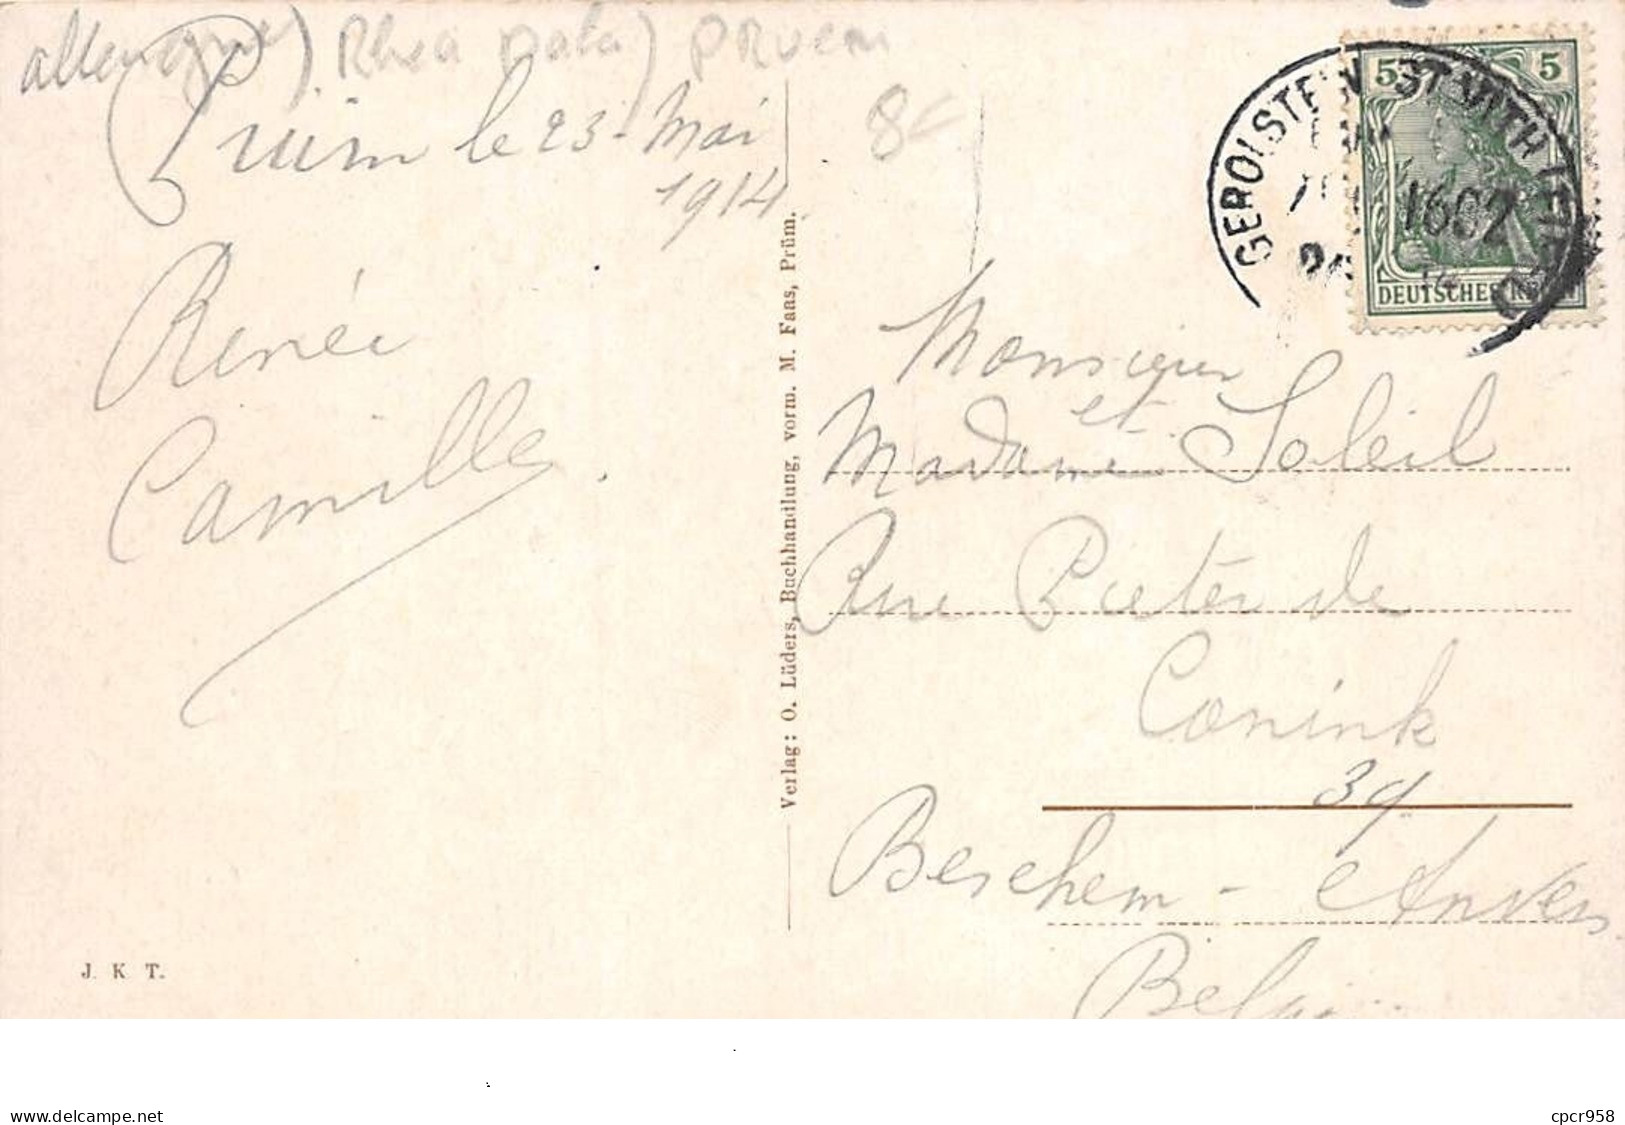 allemagne) Rhea pala) PRuem
Pruim le 23 - Mai
1914.
Renée
Camille.
8
GEROLSTEIN ST VITH
1602
5 5
DEUTSCHES REICH
Monsieur
et
Madame Soleil
Rue Pieter de
Conink
39
Berchem - Anvers
Belgi
Verlag: O. Lüders, Buchhandlung, vorm. M. Faas, Prüm.
J. K. T.
www.delcampe.net
cpcr958